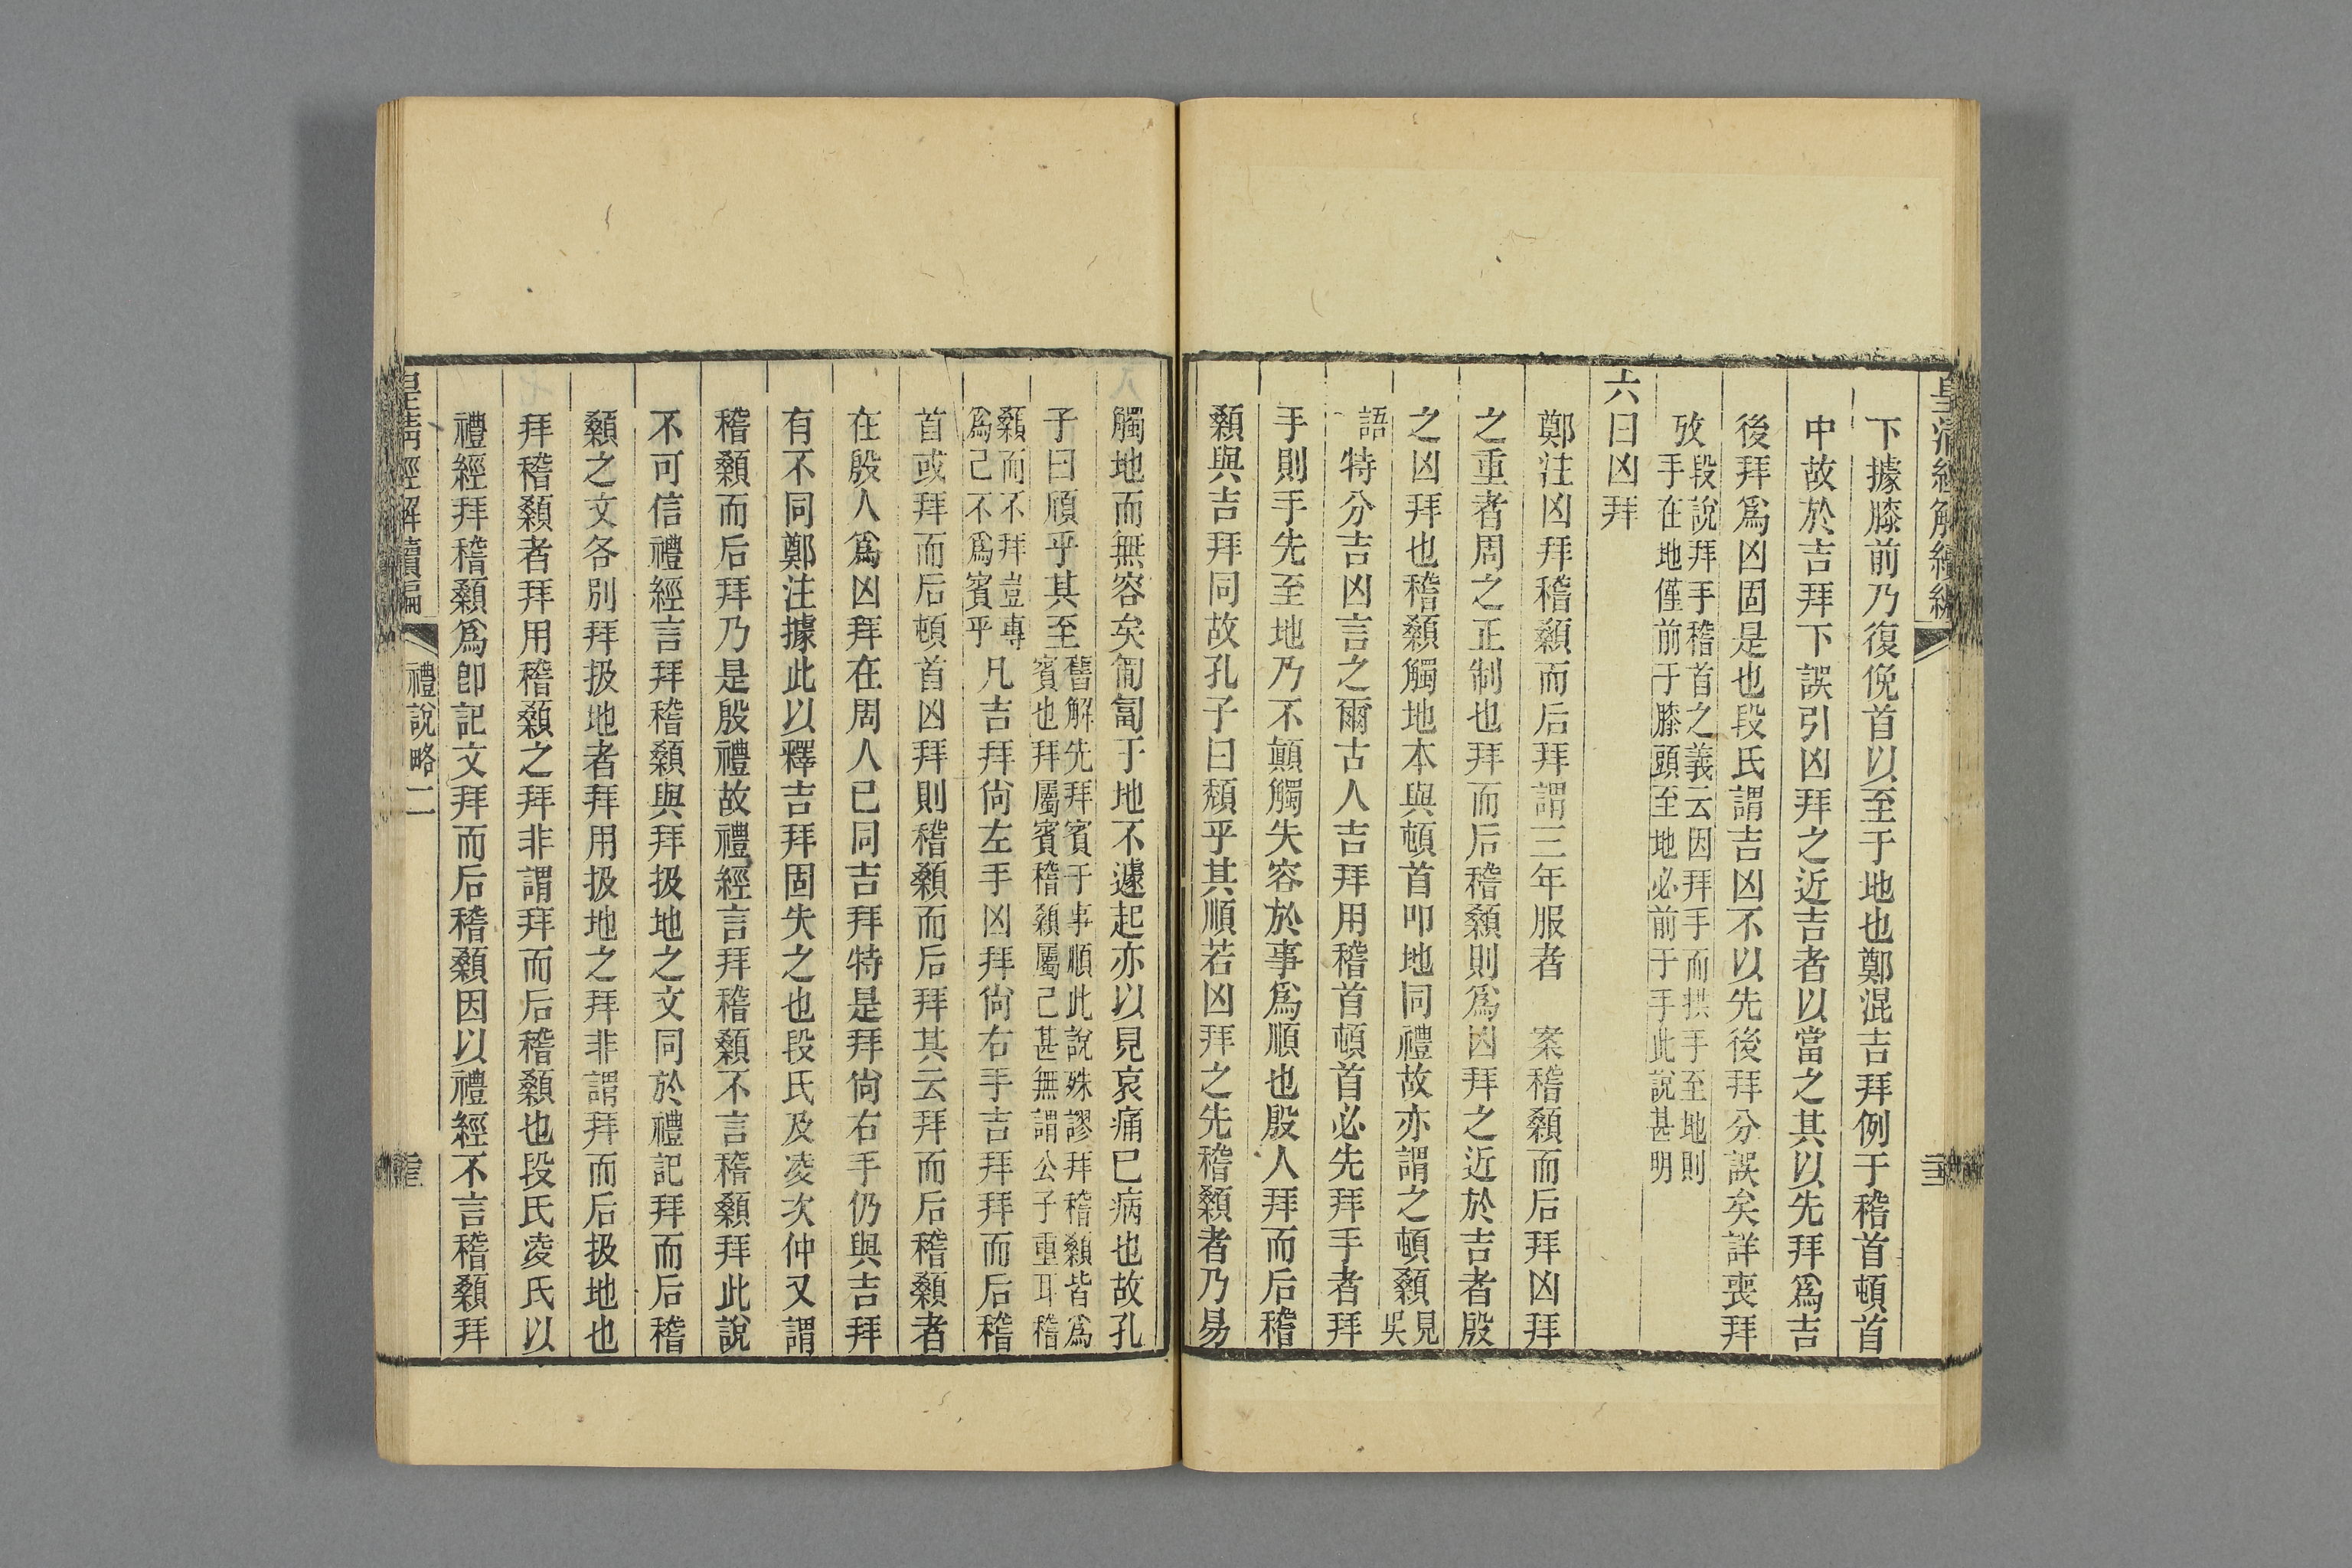 皇清經解續編
下據膝前乃復俛首以至于地也鄭混吉拜例于稽首頓首
中故於吉拜下誤引凶拜之近吉者以當之其以先拜爲吉
後拜爲凶固是也段氏謂吉凶不以先後拜分誤矣詳喪拜
攷
段說拜手稽首之義云因拜手而拱手至地則
手在地僅前于膝頭至地必前于手此說甚明
六曰凶拜
鄭注凶拜稽顙而后拜謂三年服者　案稽顙而后拜凶拜
之重者周之正制也拜而后稽顙則爲凶拜之近於吉者殷
之凶拜也稽顙觸地本與頓首叩地同禮故亦謂之頓顙
見
吳
語
特分吉凶言之爾古人吉拜用稽首頓首必先拜手者拜
手則手先至地乃不顛觸失容於事爲順也殷人拜而后稽
顙與吉拜同故孔子曰頹乎其順若凶拜之先稽顙者乃易
觸地而無容矣匍匐于地不遽起亦以見哀痛已病也故孔
子曰頎乎其至
舊解先拜賓于事順此說殊謬拜稽顙皆爲
賓也拜屬賓稽顙屬己甚無謂公子重耳稽
顙而不拜豈專
爲己不爲賓乎
凡吉拜尙左手凶拜尙右手吉拜拜而后稽
首或拜而后頓首凶拜則稽顙而后拜其云拜而后稽顙者
在殷人爲凶拜在周人已同吉拜特是拜尙右手仍與吉拜
有不同鄭注據此以釋吉拜固失之也段氏及凌次仲又謂
稽顙而后拜乃是殷禮故禮經言拜稽顙不言稽顙拜此說
不可信禮經言拜稽顙與拜扱地之文同於禮記拜而后稽
顙之文各別拜扱地者拜用扱地之拜非謂拜而后扱地也
拜稽顙者拜用稽顙之拜非謂拜而后稽顙也段氏凌氏以
禮經拜稽顙爲卽記文拜而后稽顙因以禮經不言稽顙拜
皇清經解續編
禮說略二